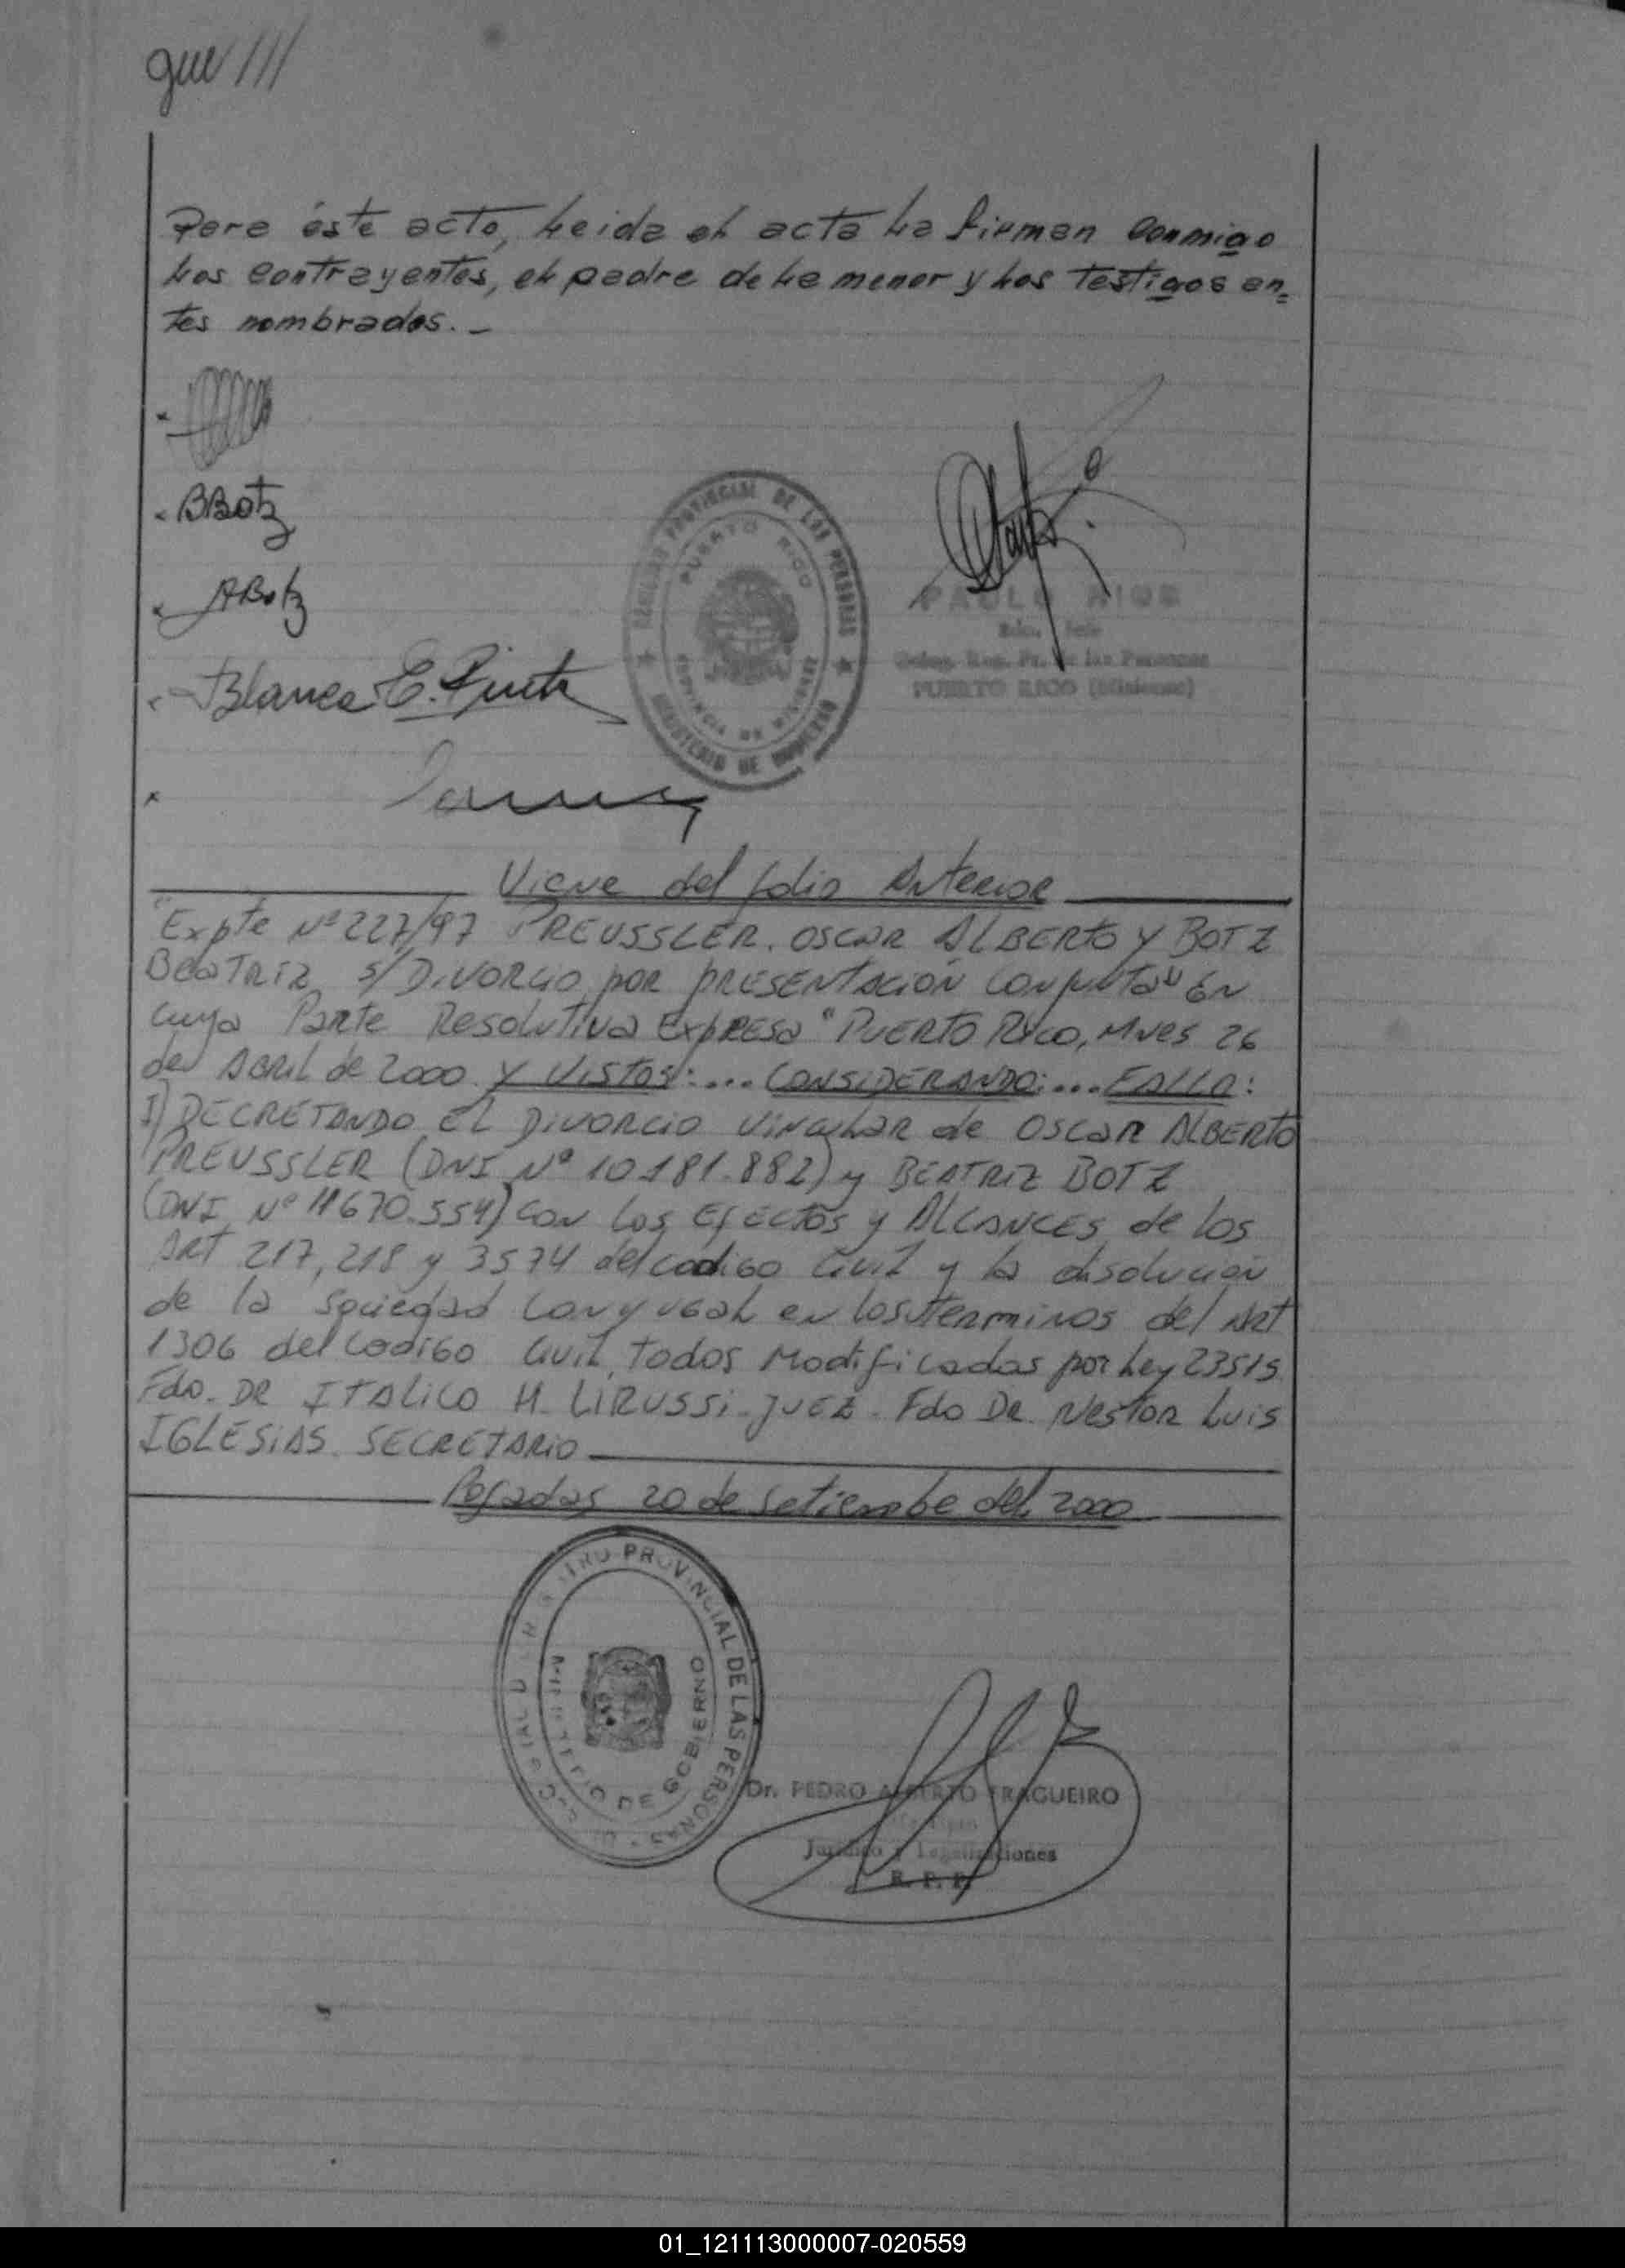 que///
Para éste acto, leida el acta la firman conmigo
los contrayentes, el padre de la menor y los testigos an=
tes nombrados.-
BBotz
ABotz
Blanca E.
REGISTRO PROVINCIAL DE LAS PERSONAS
PUERTO RICO
PROVINCIA DE MISIONES
MINISTERIO DE GOBIERNO
PAULO RIOS
Deleg. Reg. Pr. de las Personas
PUERTO RICO (Misiones)
Viene del folio Anterior
"Expte Nº 227/97 PREUSSLER. OSCAR ALBERTO Y BOTZ
BEATRIZ S/DIVORCIO POR PRESENTACIÓN CONJUNTA" EN
cuya Parte Resolutiva Expresa "PUERTO RICO, Mnes 26
de ABRIL de 2000 Y VISTOS:... CONSIDERANDO:... FALLO:
I) DECRETANDO EL DIVORCIO VINCULAR de OSCAR ALBERTO
PREUSSLER (DNI Nº 10.181.882) y BEATRIZ BOTZ
(DNI Nº 11670.554) CON LOS EFECTOS y ALCANCES de los
ART 217, 218 y 3574 del codigo civil y la disolucion
de la sociedad conyugal en los terminos del Art
1306 del codigo civil, todos Modificados por Ley 23515
Fdo. DR ITALICO H. LIRUSSI - JUEZ. Fdo DR. NESTOR LUIS
IGLESIAS. SECRETARIO
Posadas 20 de setiembe del 2000
REGISTRO PROVINCIAL DE LAS PERSONAS
MINISTERIO DE GOBIERNO
Dr. PEDRO ALBERTO FRAGUEIRO
Jurídico y Legalizaciones
R. P. P.
01_121113000007-020559